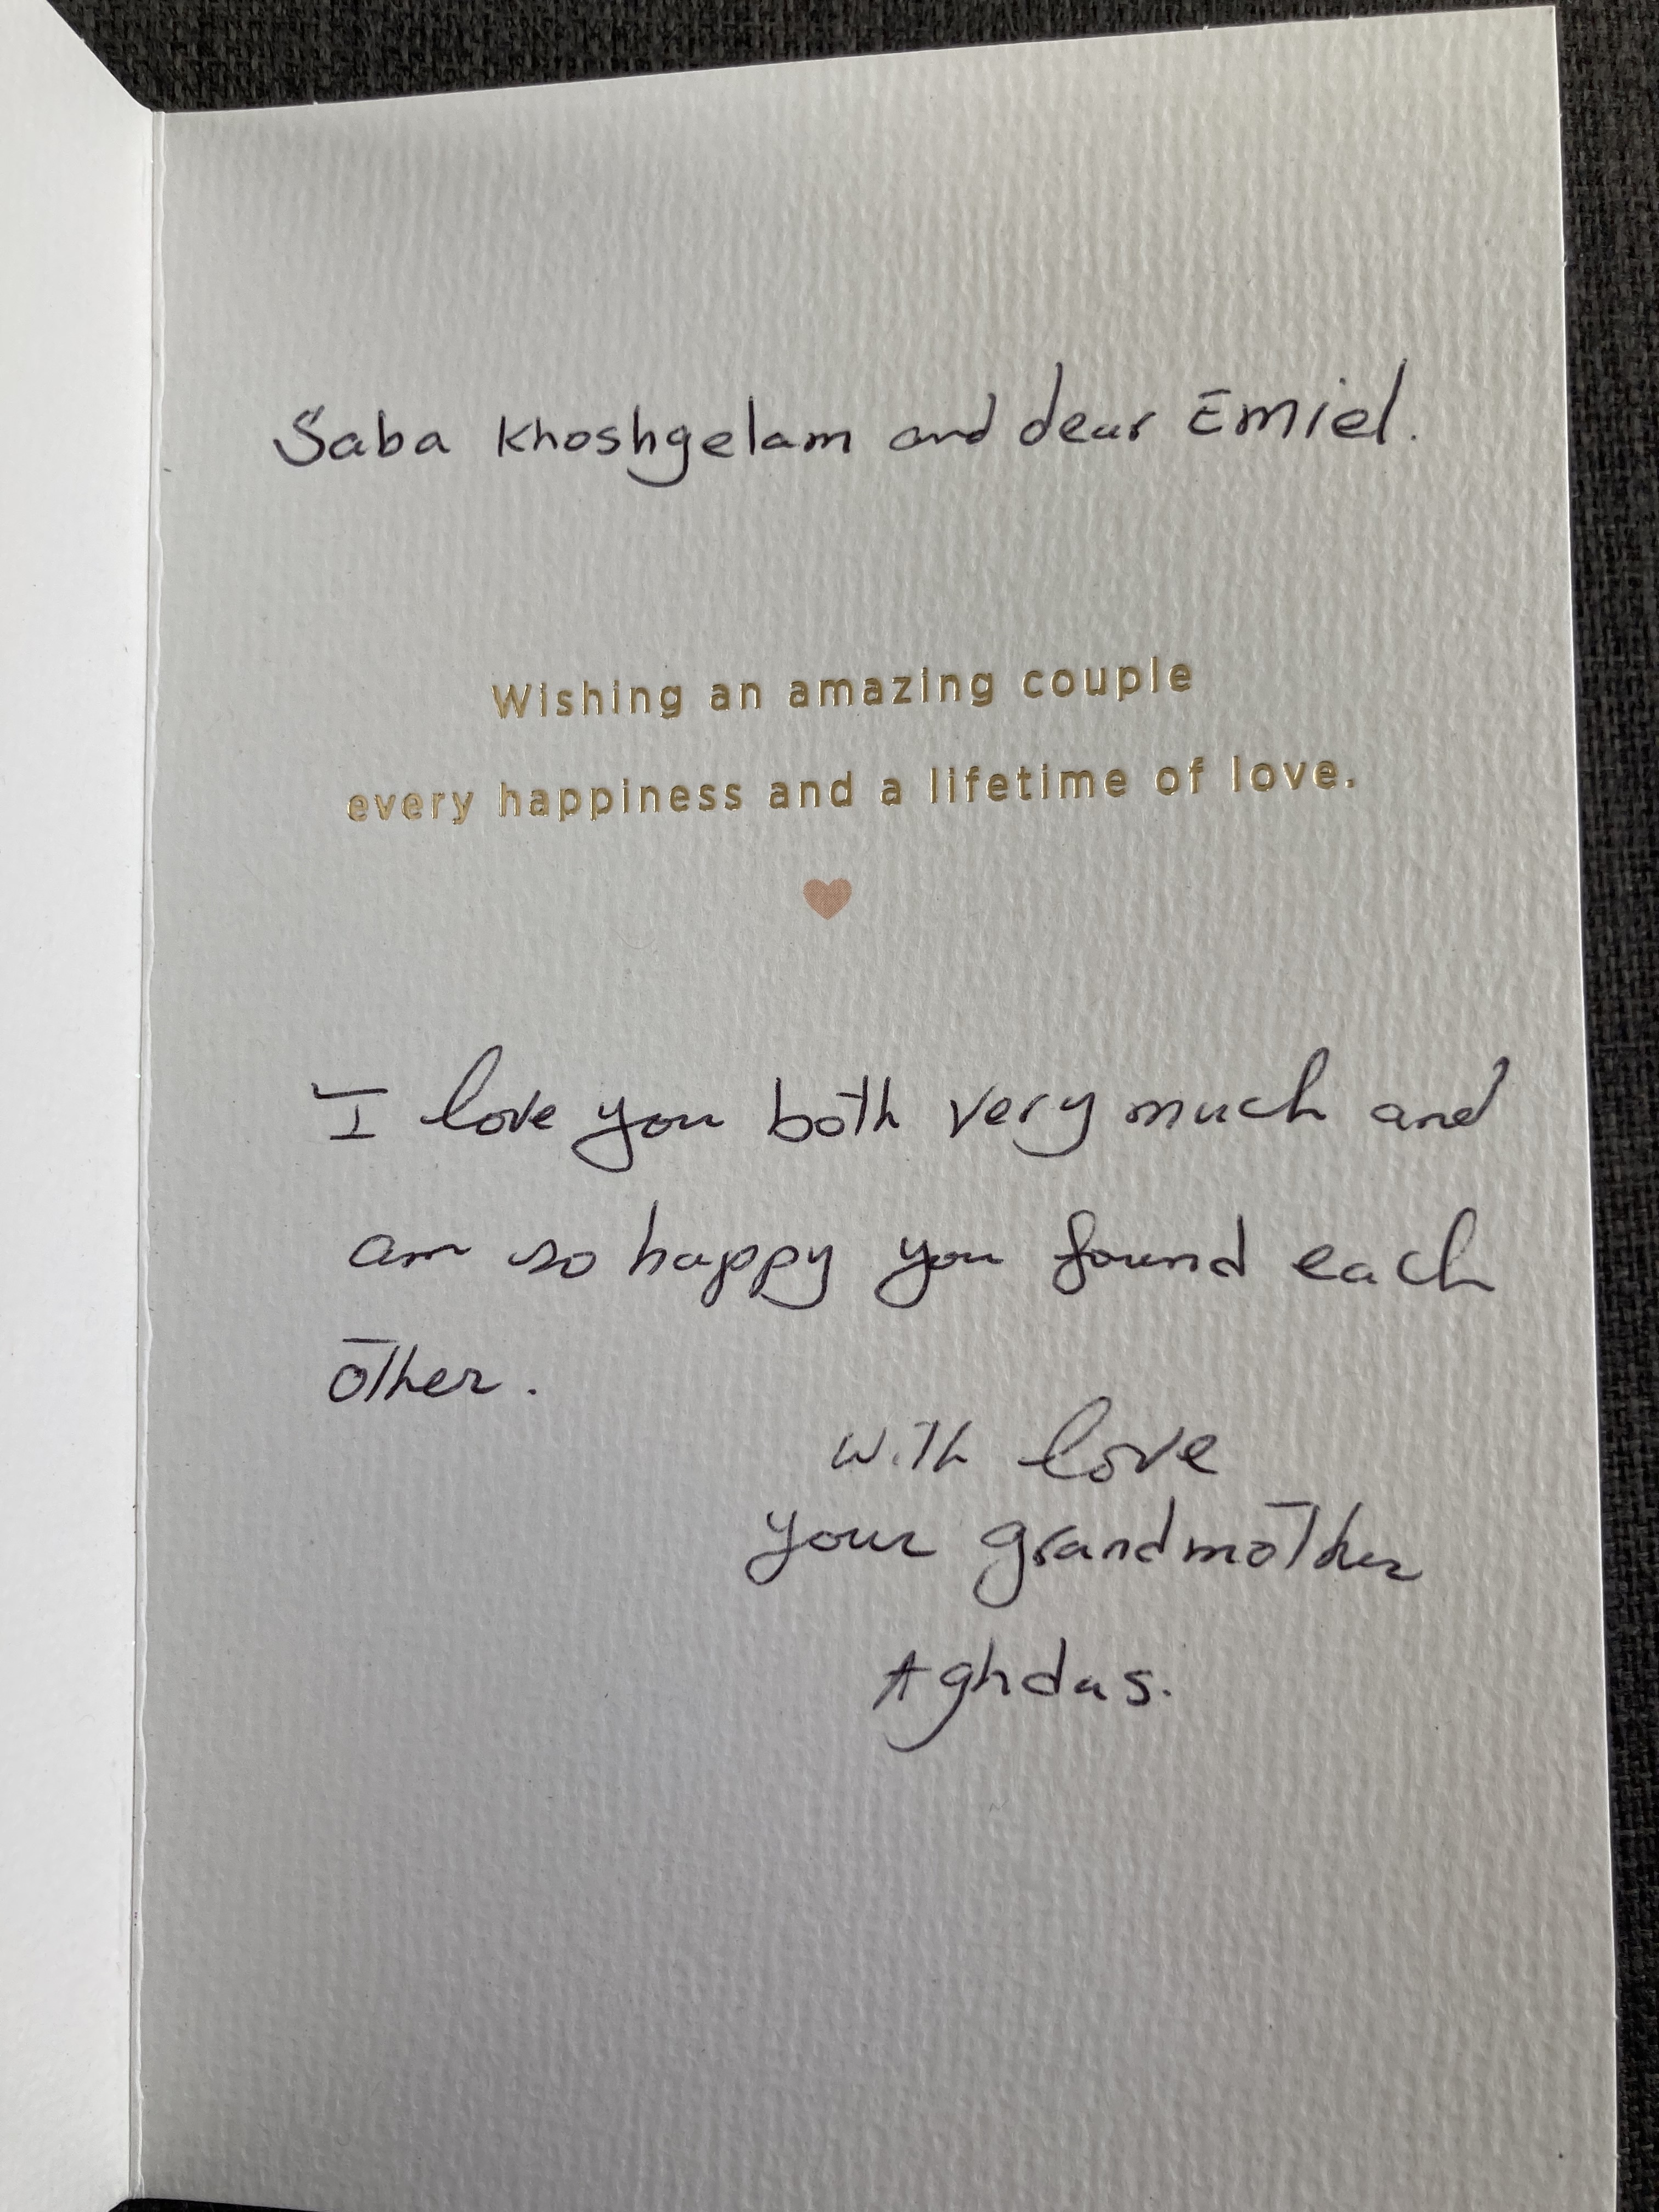 Saba Khoshgelam and dear Emiel.
Wishing an amazing couple
every happiness and a lifetime of love.
I love you both very much and
am so happy you found each
other.
with love
your grandmother
Aghdas.